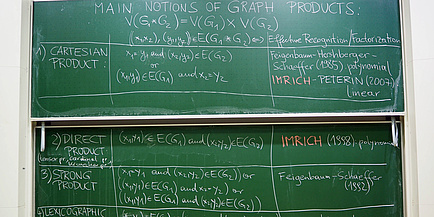 MAIN NOTIONS OF GRAPH PRODUCTS:
V(G₁*G₂) = V(G₁) x V(G₂)
((x₁,x₂), (y₁,y₂)) ∈ E(G₁*G₂) ⇔ Effective Recognition/Factorization
1) CARTESIAN PRODUCT: x₁=y₁ and (x₂,y₂) ∈ E(G₂)
or
(x₁,y₁) ∈ E(G₁) and x₂=y₂
Feigenbaum-Hershberger-
Schaeffer (1985) polynomial
IMRICH-PETERIN (2007)
Linear
2) DIRECT PRODUCT (x₁,y₁) ∈ E(G₁) and (x₂,y₂) ∈ E(G₂) IMRICH (1998) polynomial
(tensor pr., cardinal pr.
Kronecker pr.)
3) STRONG PRODUCT (x₁=y₁ and (x₂,y₂) ∈ E(G₂)) or
((x₁,y₁) ∈ E(G₁) and x₂=y₂) or
((x₁,y₁) ∈ E(G₁) and (x₂,y₂) ∈ E(G₂))
Feigenbaum-Schaeffer
(1992)
4) LEXICOGRAPHIC